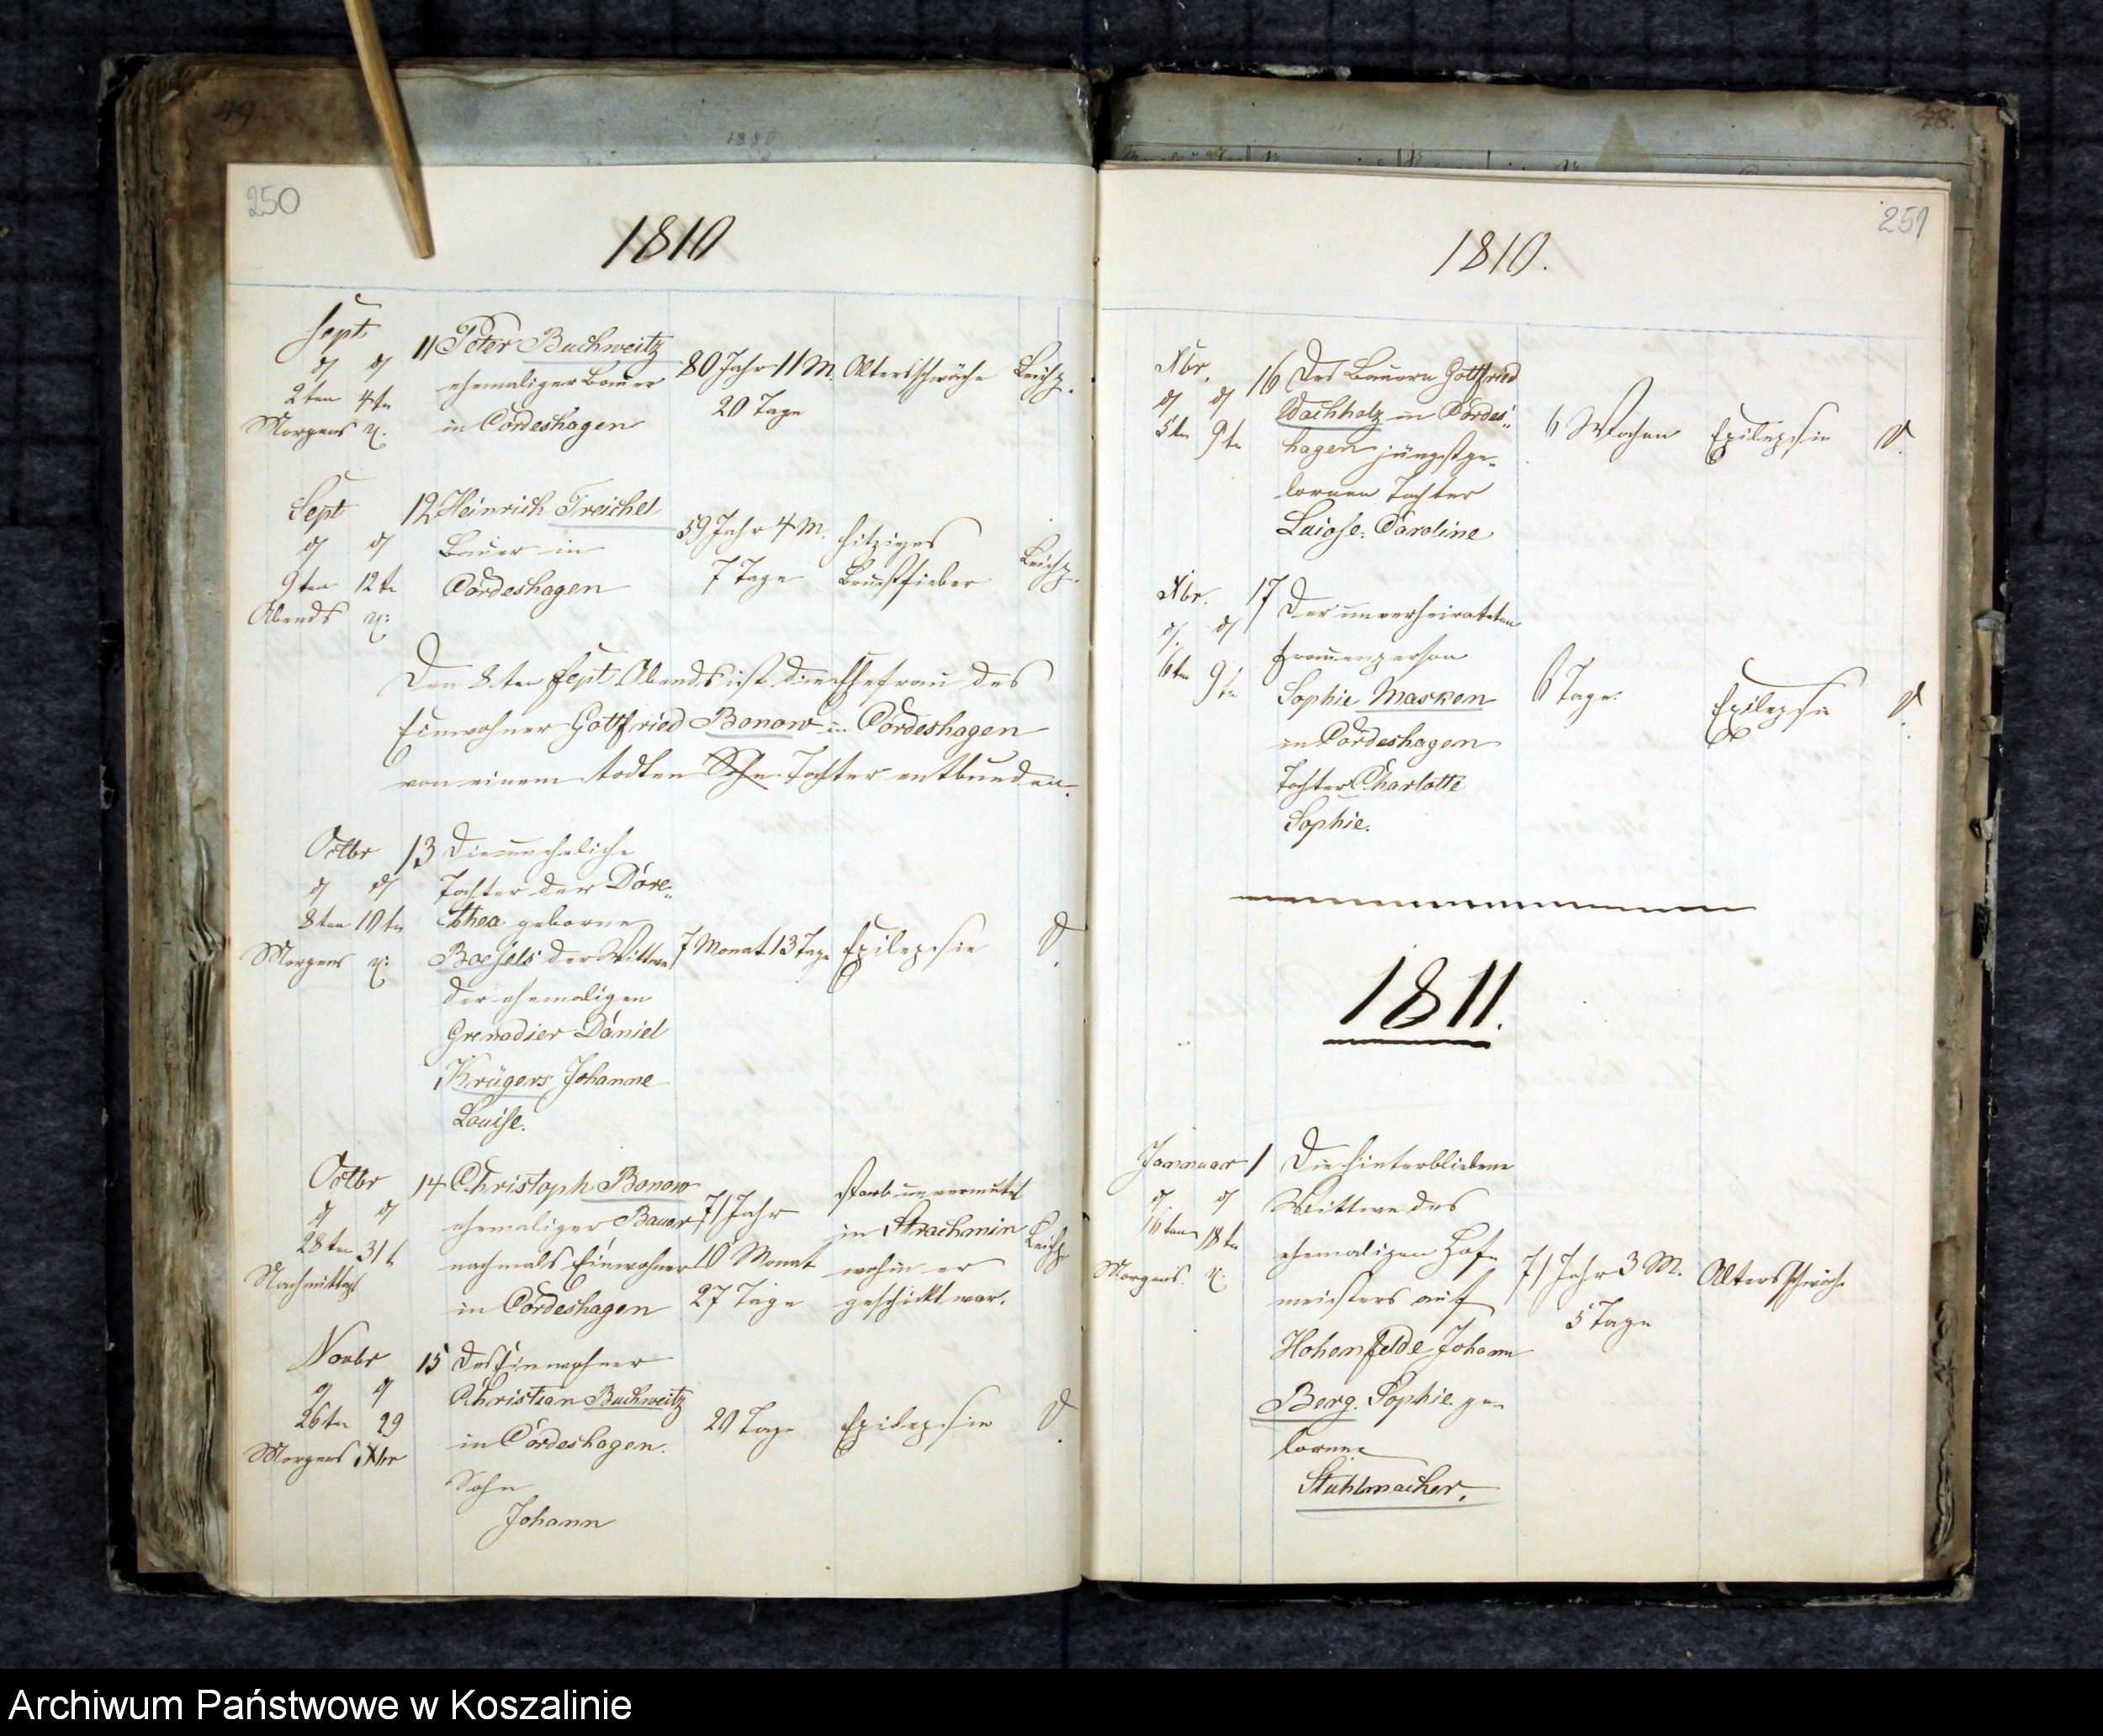 250
1810
Sept
d d
2ten 4tn
Morgens n.
11 Peter Buchweitz
ehemaliger Bauer
in Cördeshagen
80 Jahr 11 M.
20 Tage
Altersschwäche
Leichp.
Sept
d d
9ten 12tn
Abends n:
12 Heinrich Treichel
Bauer in
Cördeshagen
59 Jahr 4 M.
7 Tage
hitziges
Brustfieber
Leichp.
Den 8ten Sept Abends ist die Ehefrau des
Einwohner Gottfried Bonow in Cördeshagen
von einem todten Sohn Tochter entbunden.
Octbr
d d
8ten 10tn
Morgens n:
13 Die uneheliche
Tochter der Dore-
thea geborne
der Wittwe
der ehemaligen
Grenadier Daniel
Krügers Johanne
Louise.
7 Monat 13 Tage
Epilepsie
Octbr
d d
28ten 31t
Nachmittags
14 Christoph Bonow
ehemaliger Bauer
nachmals Einwohner
in Cördeshagen
71 Jahr
10 Monat
27 Tage
starb unvermutet
in Strachmin
wohin er
geschickt war.
Leichp
Novbr
d d
26ten 29
Morgens Xbr
15 Des Einwohner
Christian Buchweitz
in Cördeshagen.
Sohn
Johann
20 Tage
Epilepsie
251
1810.
Xbr.
d d
5tn 9tn
16 Des Bauern Gottfried
Wachholz in Cördes-
hagen jüngstge-
bornen Tochter
Luiose Caroline
6 Wochen
Epilepsie
Xbr.
d d
6tn 9tn
17 Der unverheirateten
Frauensperson
Sophie Masken
in Cördeshagen
Tochter Charlotte
Sophie.
6 Tage
Epilepsie
1811.
Jannuar
d d
18tn
Morgens. n.
1 Die hinterbliebene
Wittwe des
ehemaligen Hof-
meisters auf
Hohenfelde Johann
Berg. Sophie ge-
borne
Stuhlmacher.
71 Jahr 3 M.
5 Tage
Altersschwäche
Archiwum Państwowe w Koszalinie